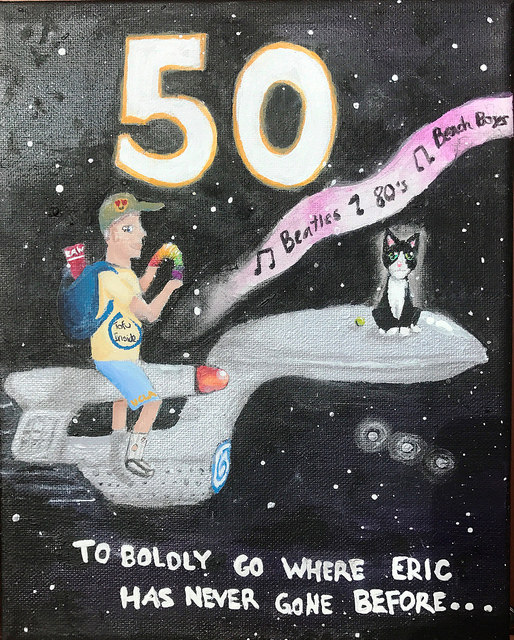 50
Beatles 80's Beach Boys
RAW
tofu
inside
TO BOLDLY GO WHERE ERIC
HAS NEVER GONE BEFORE...